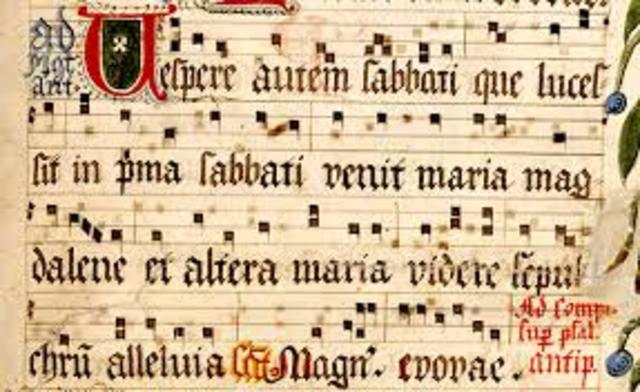 ad
Mgt
ant.
Uespere autem sabbati que luces
sit in pma sabbati venit maria mag
dalene et altera maria videre sepul
chrū alleluia Magn. evovae.
Ad comp
sup psal.
antip.